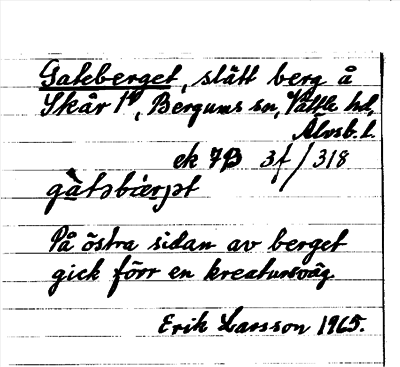 Gateberget, slätt berg å
Skår 1⁹, Bergums sn, Vättle hd,
Älvsb. l.
ek 7B 3f/318
gàtəbæ̀rjət
På östra sidan av berget
gick förr en kreatursväg.
Erik Larsson 1965.